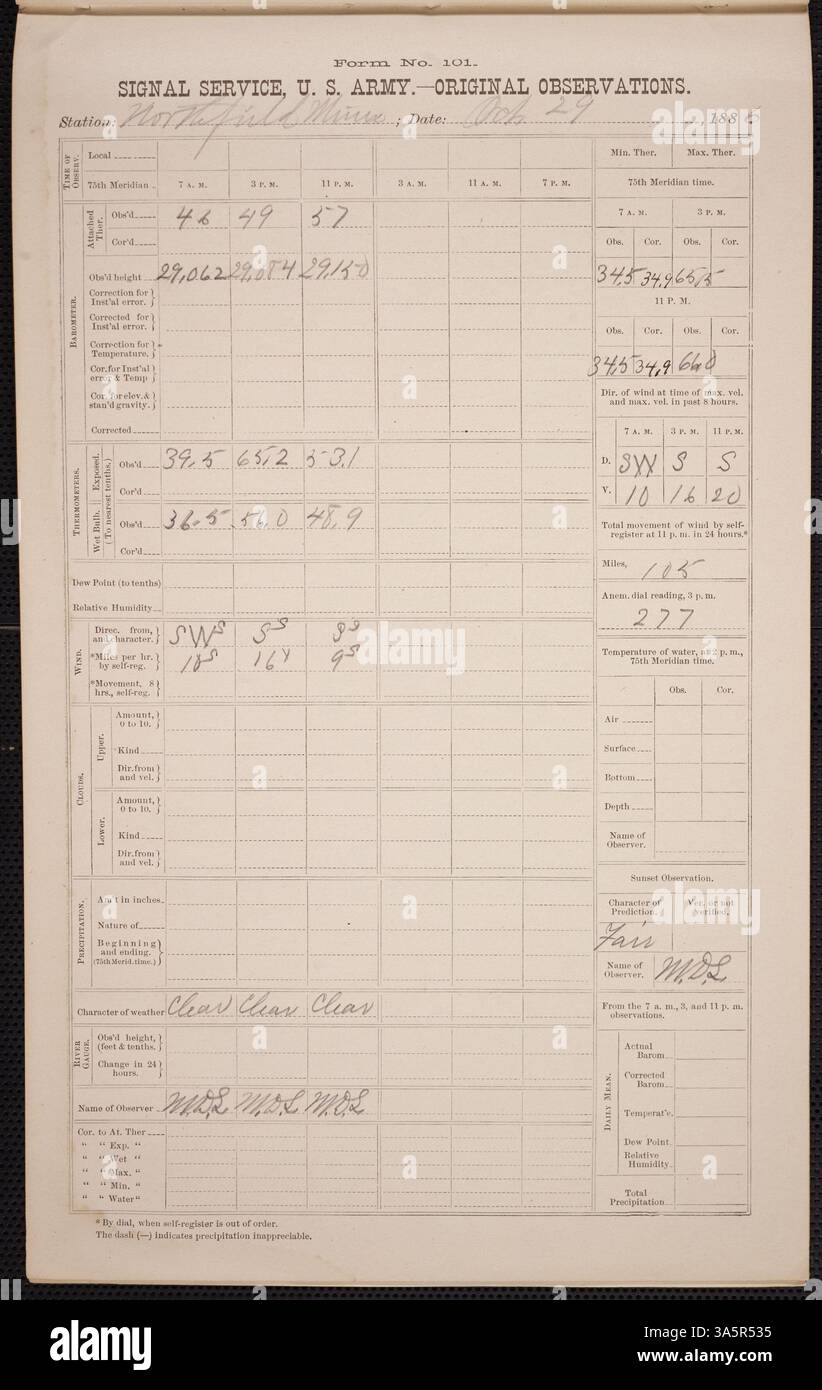 Form No. 101.
SIGNAL SERVICE, U. S. ARMY.—ORIGINAL OBSERVATIONS.
Station: Northfield Minn ; Date: Oct 29, 188
TIME OF OBSERV.
Local
75th Meridian 7 A. M. 3 P. M. 11 P. M. 3 A. M. 11 A. M. 7 P. M.
BAROMETER.
Attached Ther.
Obs'd 46 49 57
Cor'd
Obs'd height 29,062 29,084 29,150
Correction for Inst'al error.
Corrected for Inst'al error.
Correction for Temperature.
Cor. for Inst'al error & Temp
Cor. for elev. & stan'd gravity.
Corrected
THERMOMETERS.
Exposed. (To nearest tenths.)
Obs'd 39.5 65.2 53.1
Cor'd
Wet Bulb.
Obs'd 36.5 56.0 48.9
Cor'd
Dew Point (to tenths)
Relative Humidity
WIND.
Direc. from, and character. SWS SS SS
*Miles per hr. by self-reg. 10S 16 9S
*Movement, 8 hrs., self-reg.
CLOUDS.
Upper.
Amount, 0 to 10.
Kind
Dir. from and vel.
Lower.
Amount, 0 to 10.
Kind
Dir. from and vel.
PRECIPITATION.
Am't in inches
Nature of
Beginning and ending. (75th Merid. time.)
Character of weather Clear Clear Clear
RIVER GAUGE.
Obs'd height, (feet & tenths.
Change in 24 hours.
Name of Observer M.D.S. M.D.S. M.D.S.
Cor. to At. Ther
" " Exp. "
" " Wet "
" " Max. "
" " Min. "
" " Water "
* By dial, when self-register is out of order.
The dash (—) indicates precipitation inappreciable.
Min. Ther. Max. Ther.
75th Meridian time.
7 A. M. 3 P. M.
Obs. Cor. Obs. Cor.
34.5 34.9 65.5
11 P. M.
Obs. Cor. Obs. Cor.
34.5 34.9 66.0
Dir. of wind at time of max. vel. and max. vel. in past 8 hours.
7 A. M. 3 P. M. 11 P. M.
D. SW S S
V. 10 16 20
Total movement of wind by self-register at 11 p. m. in 24 hours.*
Miles, 105
Anem. dial reading, 3 p. m.
277
Temperature of water, at 2 p. m., 75th Meridian time.
Obs. Cor.
Air
Surface
Bottom
Depth
Name of Observer.
Sunset Observation.
Character of Prediction. Ver. or not verified.
Fair
Name of Observer. M.D.S.
From the 7 a. m., 3, and 11 p. m. observations.
DAILY MEAN.
Actual Barom
Corrected Barom
Temperat'e.
Dew Point
Relative Humidity
Total Precipitation
alamy
Image ID: 3A5R535
www.alamy.com